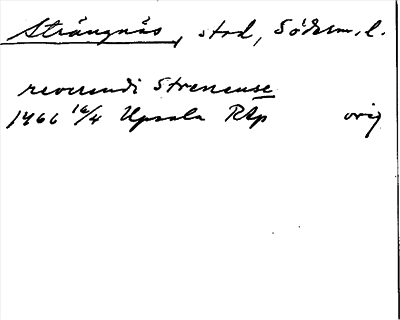 Strängnäs, stad, Söderm. l.
reverendi Strenense
1466 16/4 Upsala RAp orig